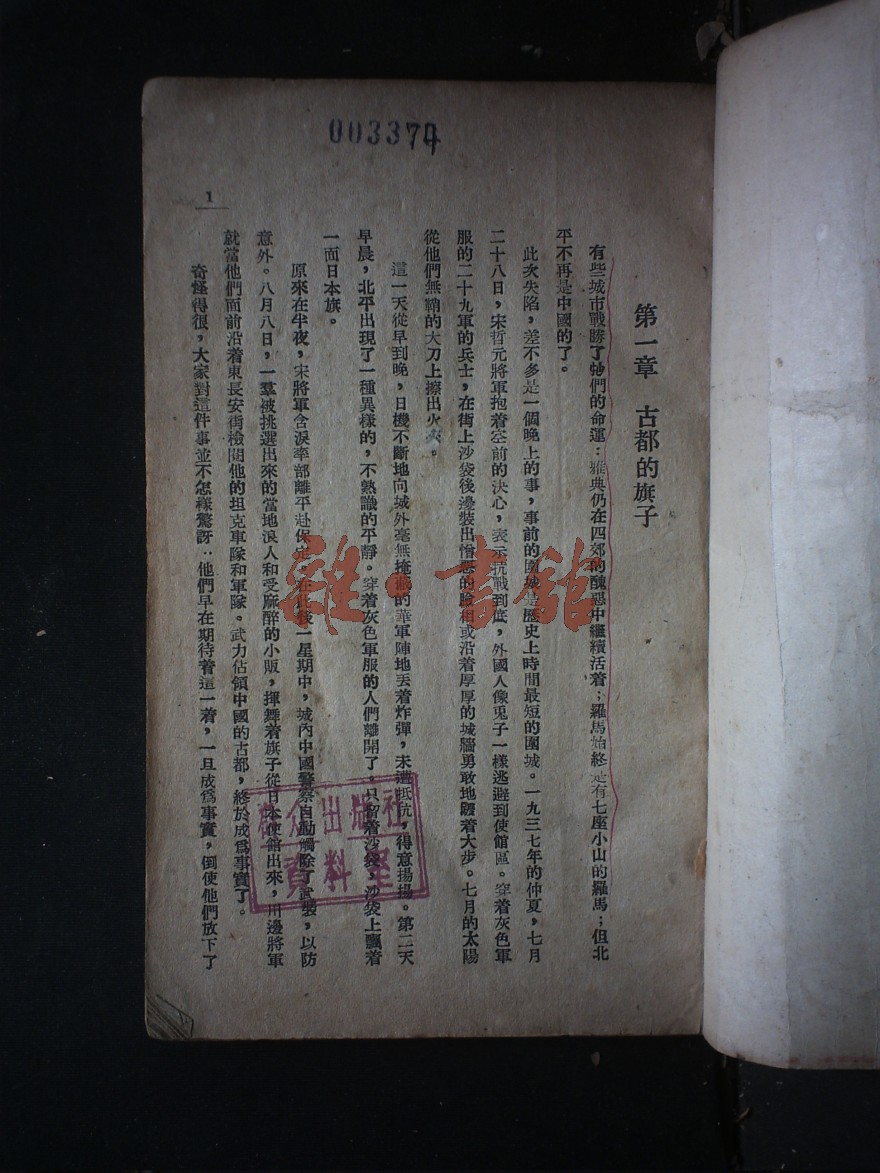 003374
1
第一章　古都的旗子
有些城市戰勝了牠們的命運：雅典仍在四郊的醜惡中繼續活着；羅馬始終是有七座小山的羅馬；但北
平不再是中國的了。
此次失陷，差不多是一個晚上的事，事前的圍城是歷史上時間最短的圍城。一九三七年的仲夏，七月
二十八日，宋哲元將軍抱着空前的決心，表示抗戰到底，外國人像兎子一樣逃避到使館區。穿着灰色軍
服的二十九軍的兵士，在街上沙袋後邊裝出憎惡的臉相或沿着厚厚的城牆勇敢地踱着大步。七月的太陽
從他們無鞘的大刀上擦出火來。
這一天從早到晚，日機不斷地向城外毫無掩蔽的華軍陣地丟着炸彈，未遭抵抗，得意揚揚。第二天
早晨，北平出現了一種異樣的，不熟識的平靜。穿着灰色軍服的人們離開了。只留着沙袋，沙袋上飄着
一面日本旗。
原來在半夜，宋將軍含淚率部離平赴保定。在此後一星期中，城內中國警察自動解除了武裝，以防
意外。八月八日，一羣被挑選出來的當地浪人和受麻醉的小販，揮舞着旗子從日本使館出來，川邊將軍
就當他們面前沿着東長安街檢閱他的坦克車隊和軍隊。武力佔領中國的古都，終於成爲事實了。
奇怪得很，大家對這件事並不怎樣驚訝：他們早在期待着這一着，一旦成爲事實，倒使他們放下了
羣众出版社
資料室
雜·書館